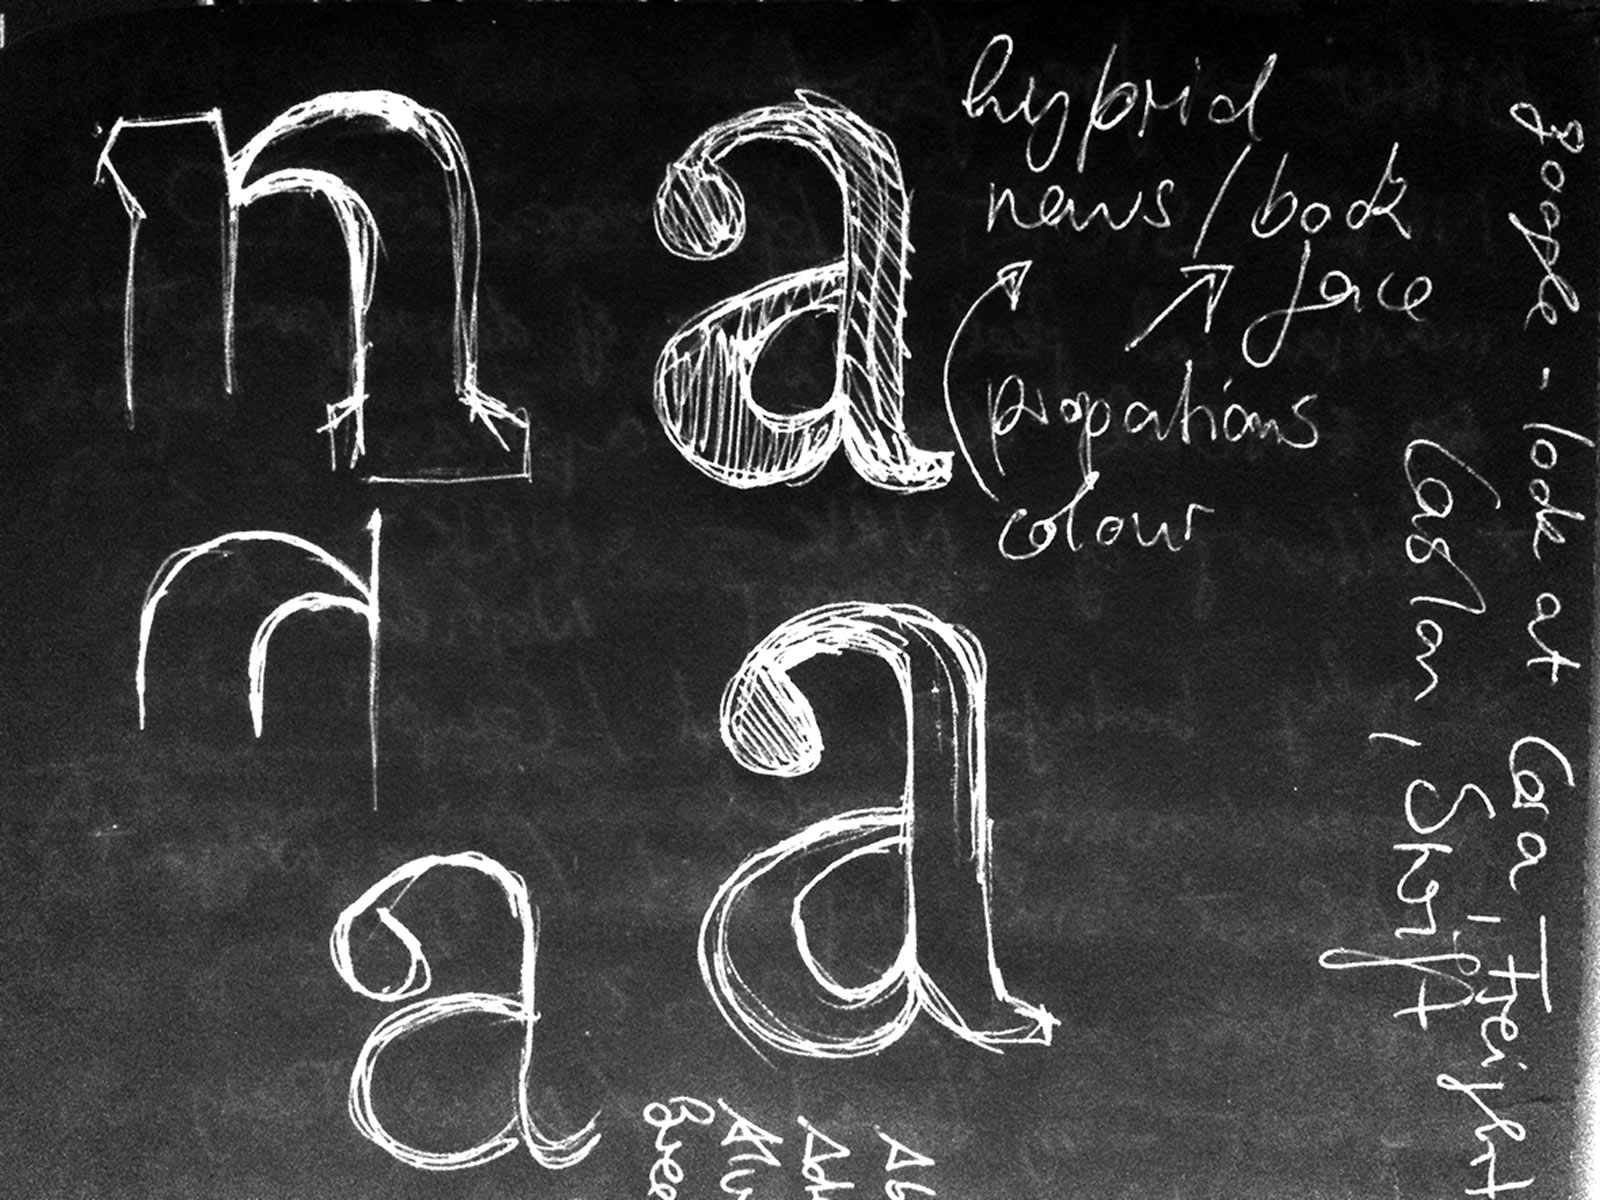 n a
hybrid
news / book
face
proportions
colour
a
a
google - look at Cara, Freight
Caslon, Shift